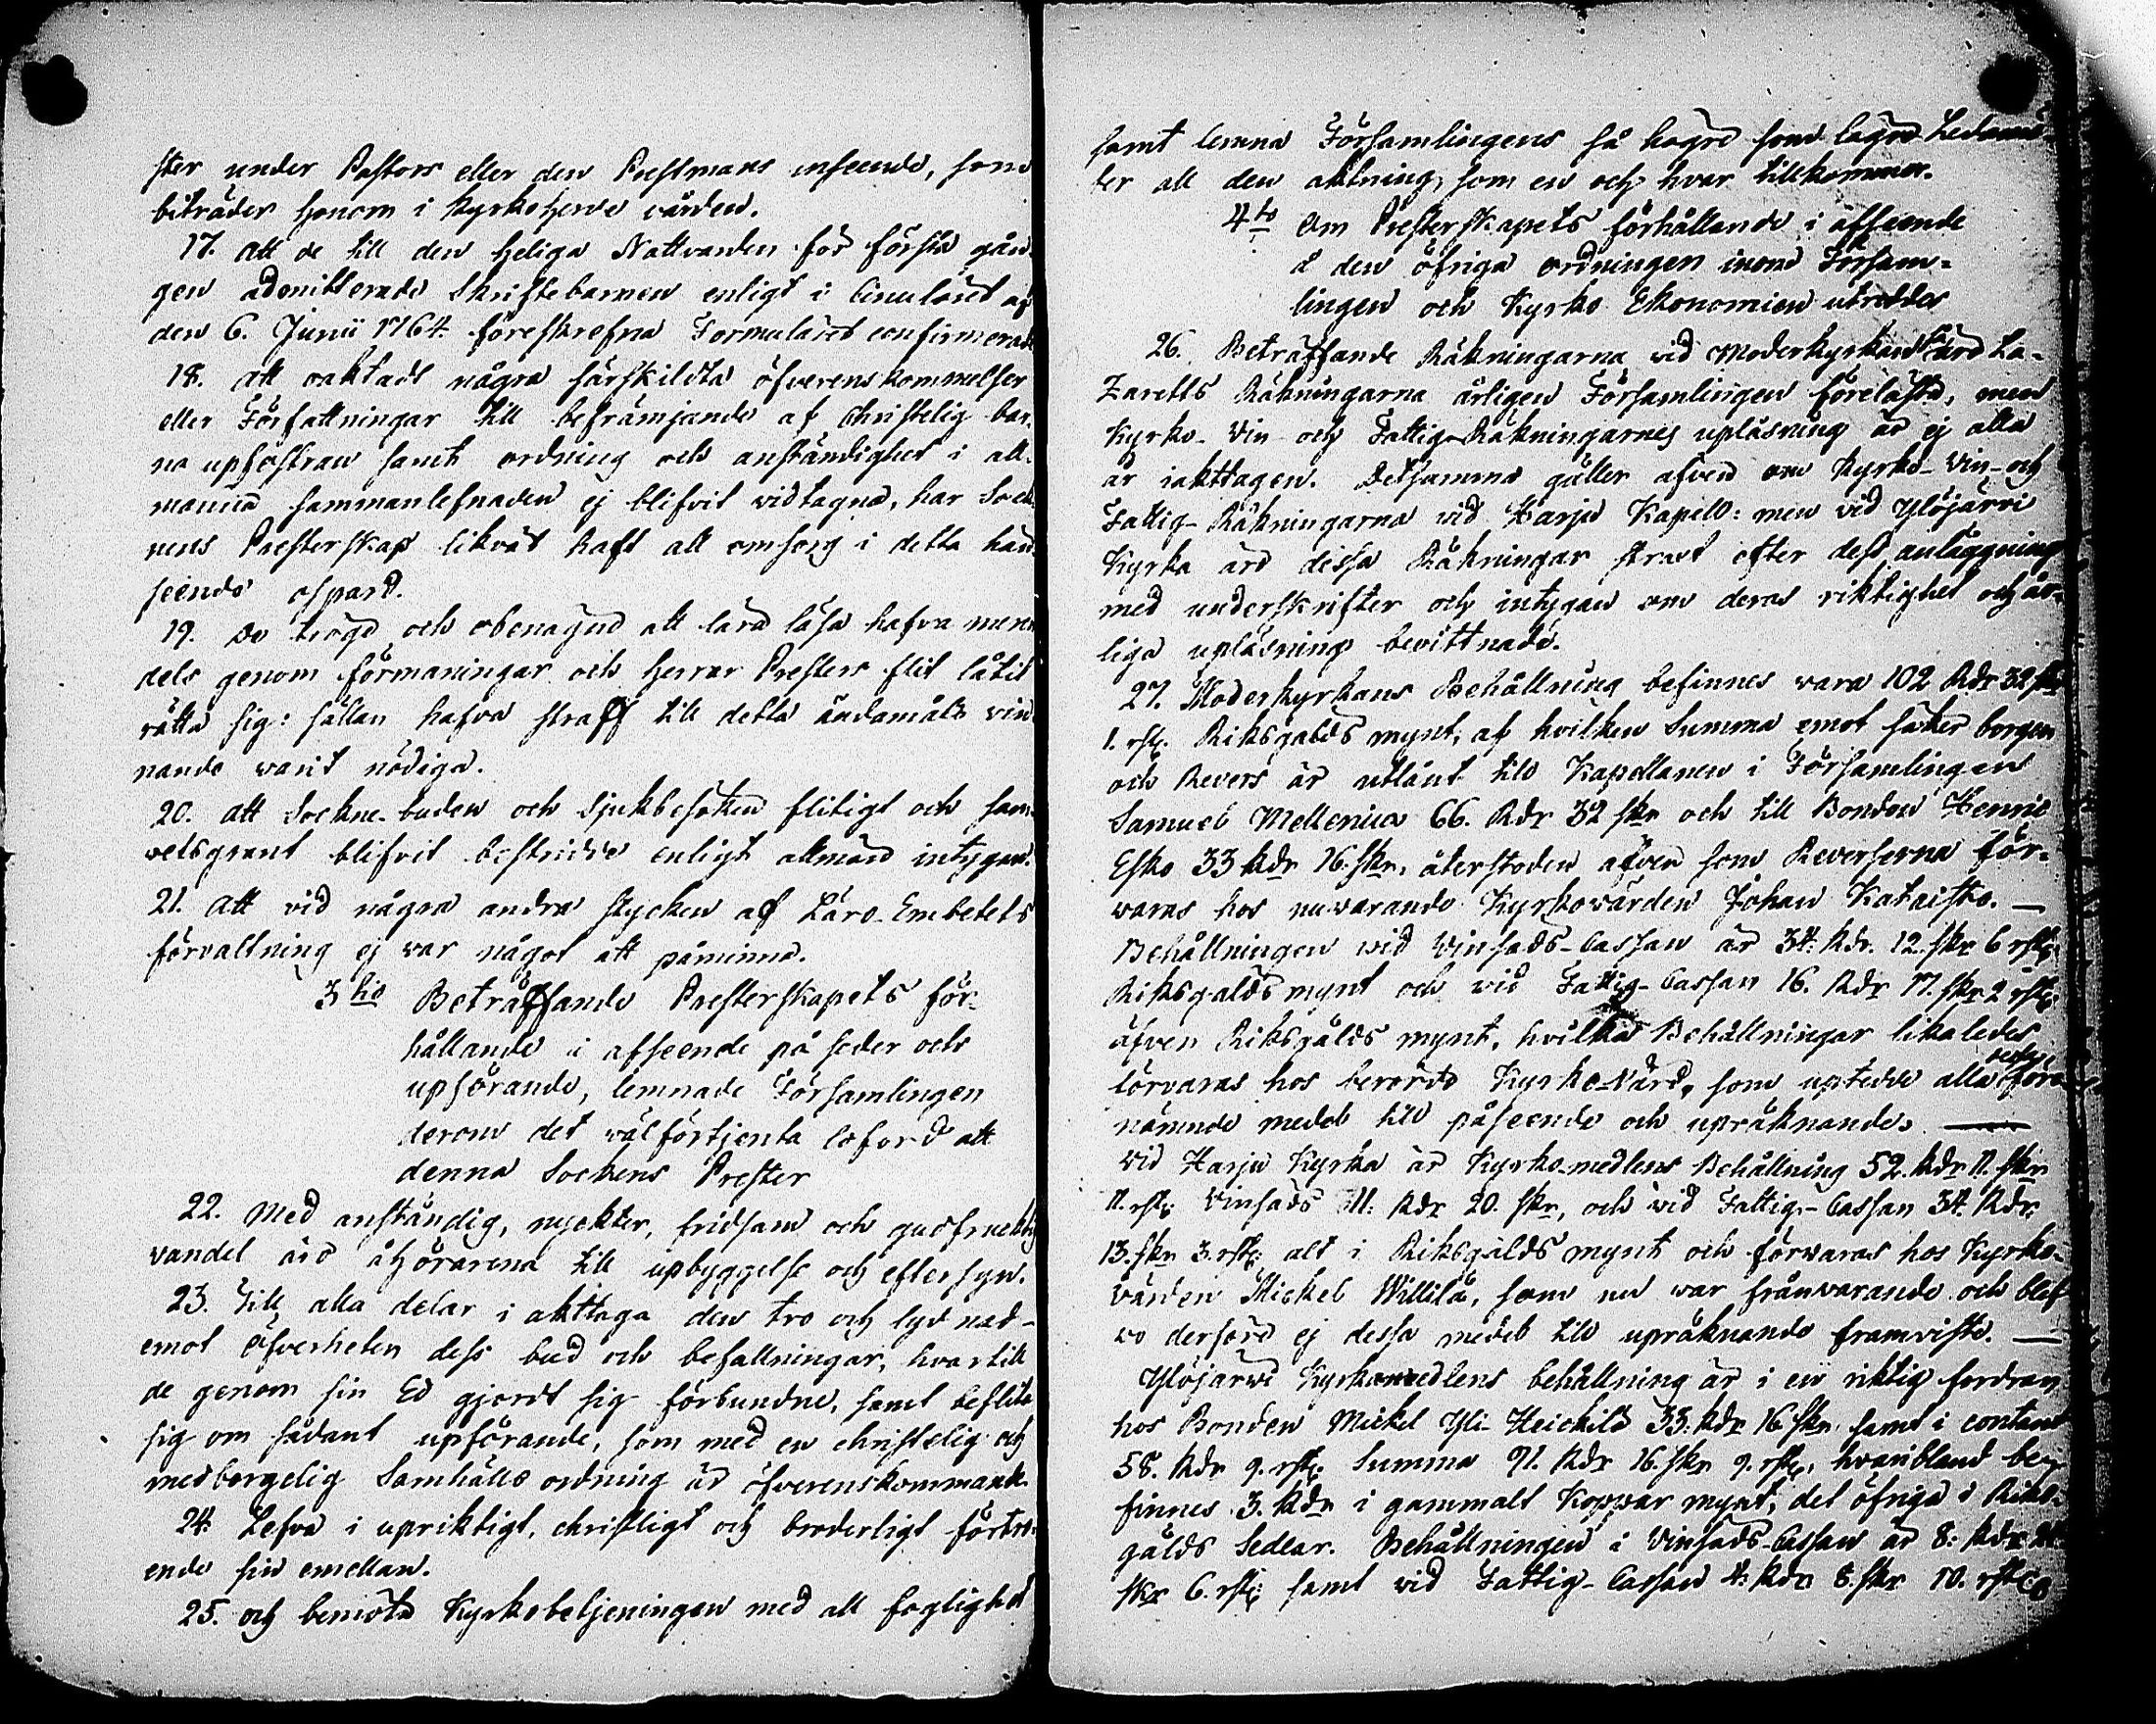 ster under Pastors eller den Prestmans inseende, som
biträder honom i Kyrkoherde vården.
17. Att de till den heliga Nattvarden för första gån-
gen admitterade Skriftebarnen enligt i Circulairet af
den 6. Junii 1764. föreskrefna Formulairet confirmerade
18. Att oaktadt några särskildta öfverenskommelser
eller Författningar till befrämjande af Christelig bar-
na upfostran samt ordning och anständighet i all-
männa sammanlefnaden ej blifvit vidtagna, har Sock-
nens Presterskap likväl haft all omsorg i detta hän-
seende ospard.
19. De tröga och obenägna att lära läsa hafva meren-
dels genom förmaningar och Herrar Presters flit låtit
rätta sig: sällan hafva straff till detta ändamåls vin-
nande varit nödiga.
20. Att Sockne-buden och Sjukbesöken flitigt och sam-
vetsgrant blifvit bestridde enligt allmänt intygan.
21. Att vid några andra stycken af Läro-Embetets
förvaltning ej var något att påminna.
3tio Beträffande Presterskapets för-
hållande i afseende på seder och
upförande, lemnade Församlingen
derom det välförtjenta loford att
denna Sockens Prester
22. Med anständig, nyckter, fridsam och gudfrucktig
vandel äro åhörarena till upbyggelse och eftersyn.
23. Till alla delar i akttaga den tro och lydnad
emot Öfverheten dess bud och befallningar, hvartill
de genom sin Ed gjordt sig förbundne, samt beflita
sig om sådant upförande, som med en christelig och
medborgelig Samhälls ordning är öfverenskommande
24. Lefva i upriktigt, christligt och broderligt förtro-
ende sin emellan.
25. och bemöta Kyrkobetjeningen med all foglighet
samt lemna Församlingens så högre som lägre Ledamö-
ter all den aktning, som en och hvar tillkommer.
4to Om Presterskapets förhållande i afseende
å den öfriga ordningen inom Försam-
lingen och Kyrko Ekonomien utreddes
26. Beträffande Räkningarna vid Moderkyrkan äro La-
zaretts Räkningarna årligen Församlingen föreläste, men
Kyrko- Vin- och Fattig-Räkningarnes upläsning är ej alla
år iakttagen. Detsamma gäller afven om Kyrko- Vin- och
Fattig- Räkningarna vid Harju Kapell: men vid Ylöjärvi
Kyrka äro dessa Räkningar strax efter dess anläggning
med underskrifter och intygan om deras riktighet och år-
liga upläsning bevittnade.
27. Moderkyrkans Behållning befinnes vara 102 Rdr 32 skr
1. rst. Riksgälds mynt, af hvilken Summa emot säker borgen
och Revers är utlånt till Kapellanen i Församlingen
Samuel Mellenius 66. Rdr 32 skr och till Bonden Henric
Esko 33 Rdr 16. skr, återstoden äfven som Reverserna för-
waras hos nuvarande Kyrkovärden Johan Kataisto. —
Behållningen wid Vinsäds-Cassan är 34. Rdr. 12. skr 6 rst.
Riksgälds mynt och vid Fattig-Cassan 16. Rdr 17. skr 2 rst.
äfven Riksgälds mynt, hvilka Behållningar likaledes
förvaras hos berörde Kyrko-Värd, som uptedde alla desse före-
nämnde medel till påseende och upräknande. —
Vid Harju Kyrka är Kyrko-medlens Behållning 52. Rdr 11. skr
11. rst. Vinsäds 11. Rdr 20. skr, och vid Fattig-Cassan 34. Rdr.
13. skr 3. rst. alt i Riksgälds mynt och förwaras hos Kyrko-
värden Mickel Willilä, som nu war frånvarande och blef-
vo derföre ej dessa medel till upräknande framviste. —
Ylöjärvi Kyrkomedlens behållning är i en riktig fordran
hos Bonden Mickel Yli-Heickilä 33. Rdr 16 skr samt i contant
58. Rdr 9. rst. Summa 91. Rdr 16. skr 9. rst., hvaribland be-
finnes 3. Rdr i gammalt Koppar mynt, det öfriga i Riks-
gälds Sedlar. Behållningen i Vinsäds-Cassan är 8. Rdr
skr 6. rst. samt vid Fattig-Cassan 4. Rdr 8. skr 10. rst.